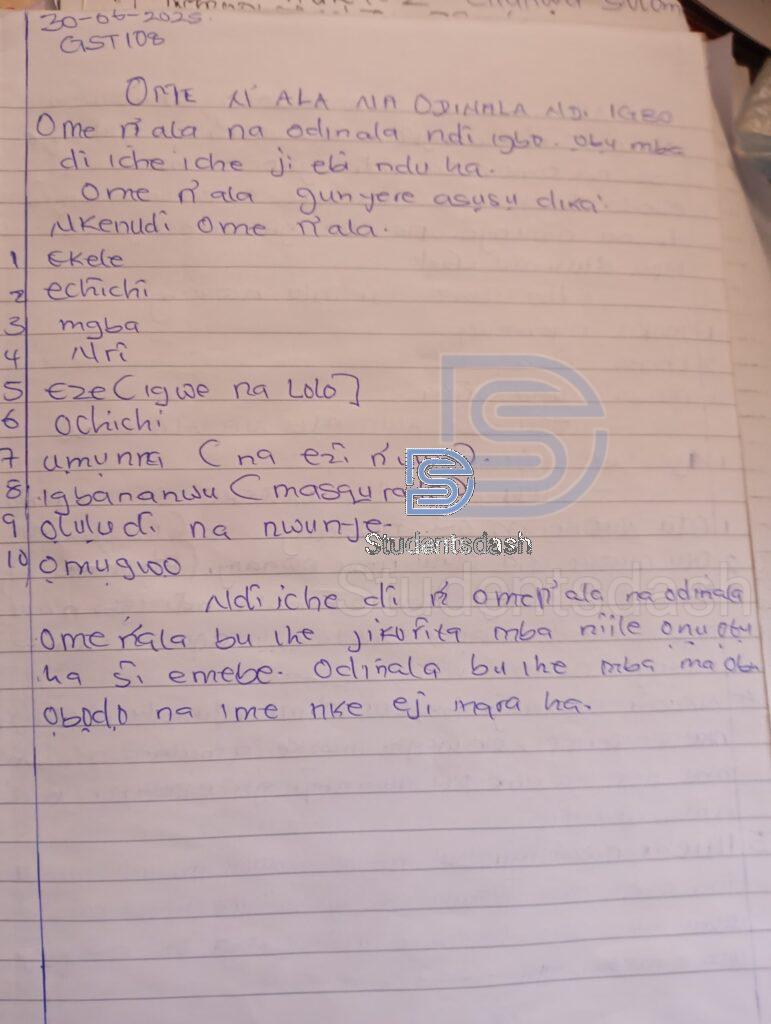 30-06-2025
GST108
OME N' ALA NA ODINALA NDI IGBO
Ome n'ala na odinala ndi igbo. ọbụ mba
di iche iche ji ebi ndu ha.
Ome n'ala gunyere asụsụ dika:
Nkenudi Ome n'ala.
1 Ekele
2 echichi
3 mgba
4 Nri
5 Eze (igwe na Lolo]
6 Ochichi
7 ụmụnna (na ezi n'
8 igbananwu (
9 Olulu di na nwunye.
10 ọmụgwọ
Ndi iche di n' omen'ala na odinala
Ome n'ala bu ihe jikorita mba niile ọnụ ọtu
ha si emebe. Odinala bu ihe mba ma
ọbọdọ na ime nke eji mara ha.
Studentsdash
Studentsdash